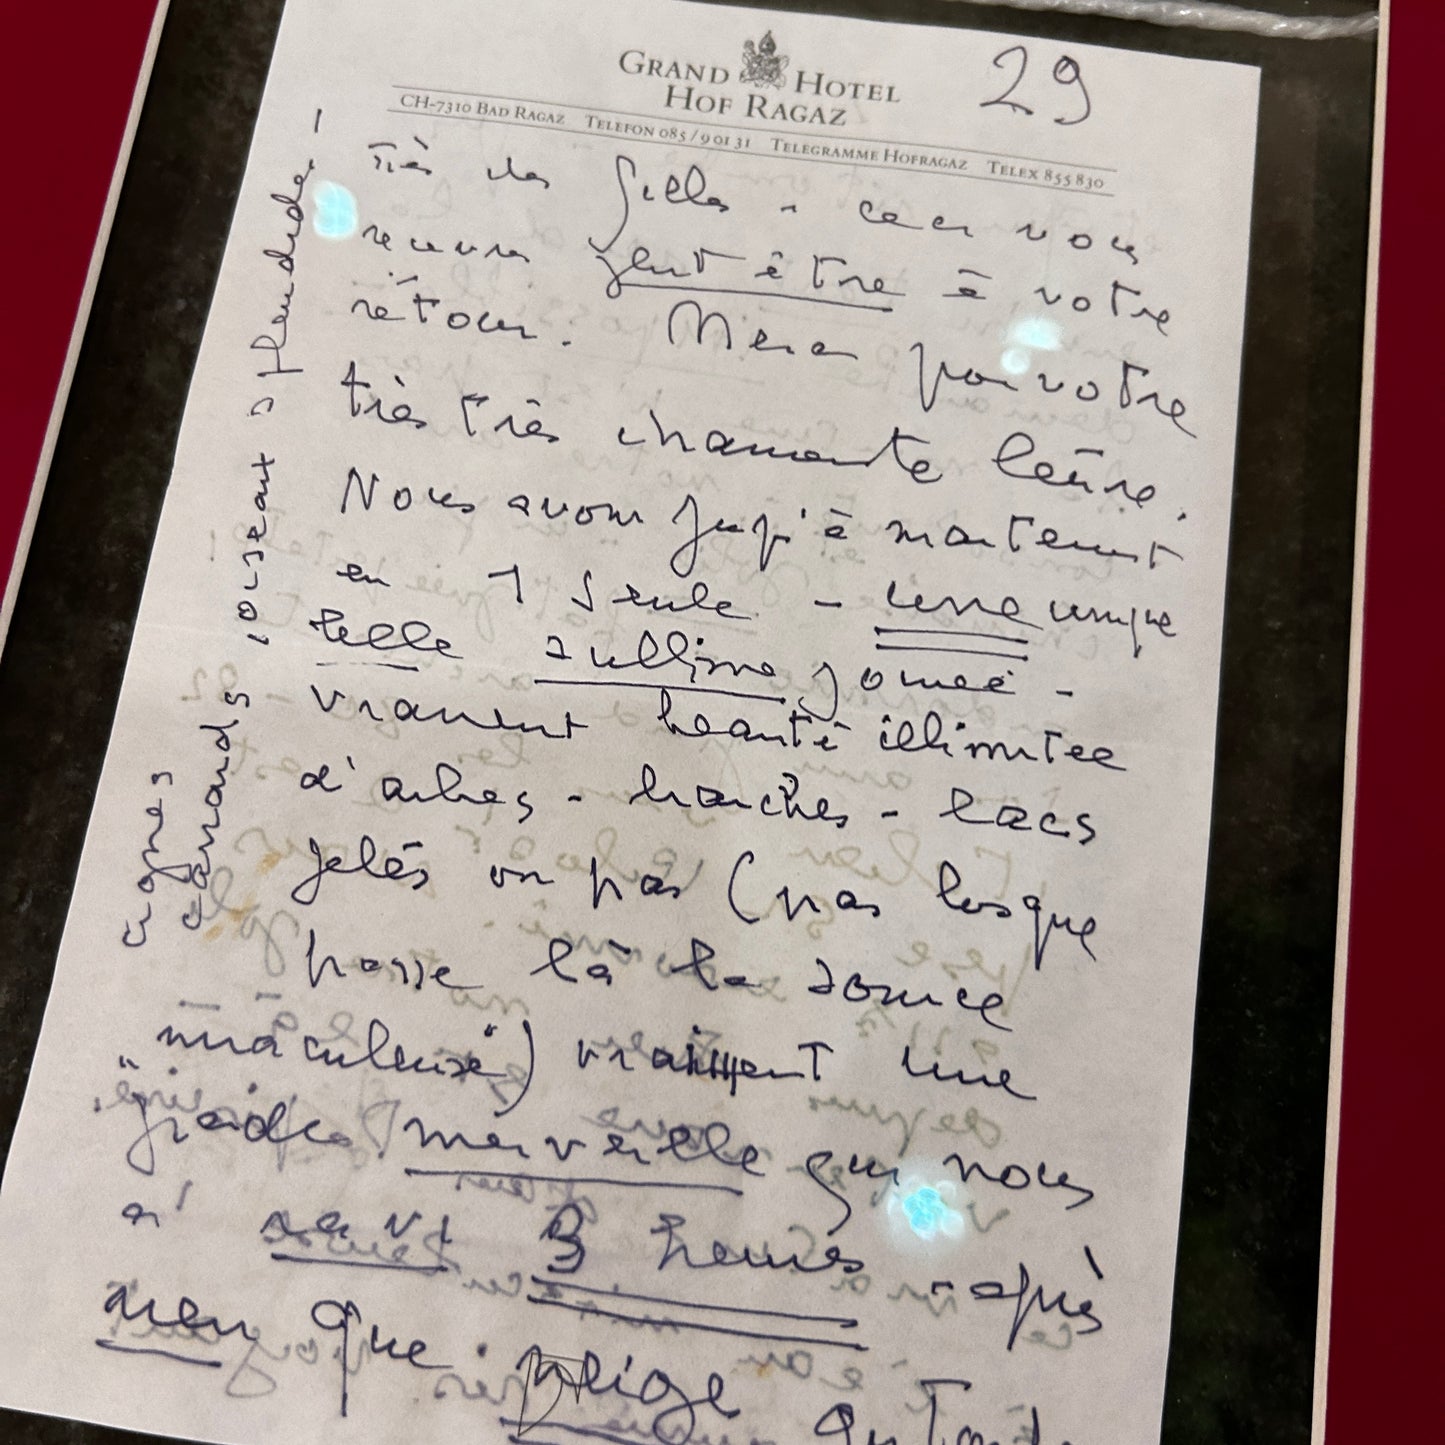 GRAND HOTEL
HOF RAGAZ
CH-7310 BAD RAGAZ TELEFON 085/9 01 31 TELEGRAMME HOFRAGAZ TELEX 855 830
29
très chers Gilles - ceci vous
trouvera peut être à votre
rétour. Merci pour votre
très très charmante lettre.
Nous avons jusqu'à maintenant
eu 1 seule - une unique
telle sublime journée -
vraiment beauté illimitée
d'arbres - branches - lacs
gelés ou pas (pas lorsque
passe là la source
"miraculeuse") vraiment une
grande merveille qui nous
a ravi 3 heures - après
rien que neige
cygnes
canards, oiseaux splendides -